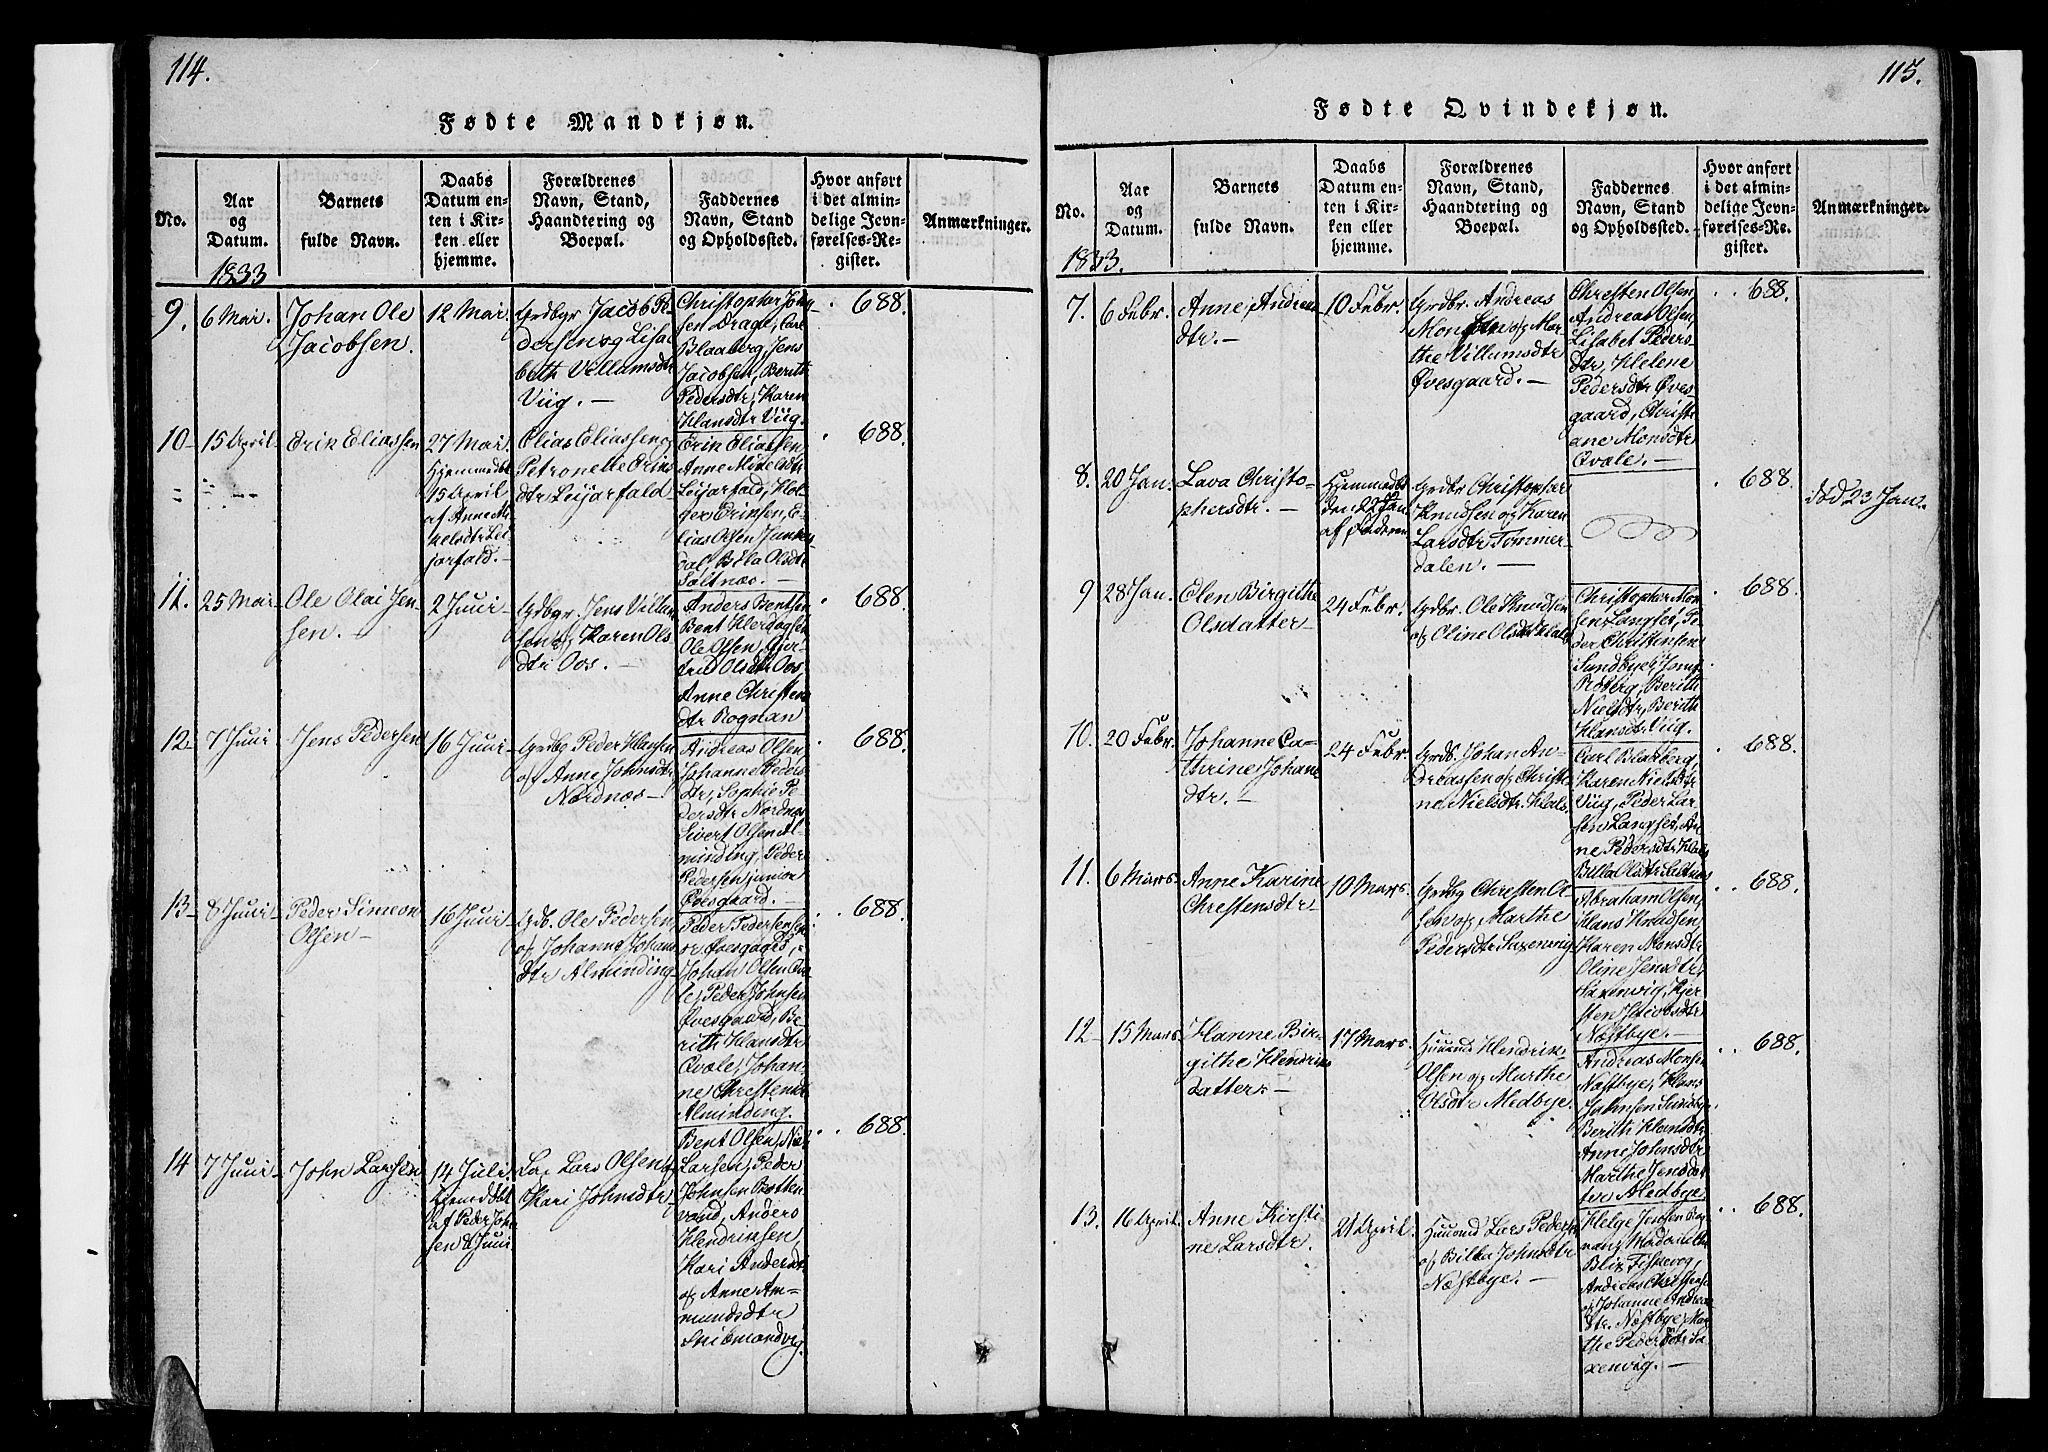 114.
Fødte Mandkjøn.
No.
Aar og Datum.
Barnets fulde Navn.
Daabs Datum enten i Kirken eller hjemme.
Forældrenes Navn, Stand, Haandtering og Boepæl.
Faddernes Navn, Stand og Opholdssted.
Hvor anført i det almindelige Jevnførelses-Register.
Anmærkninger.
1833
9.
6 Mai.
Johan Ole
Jacobsen.
12 Mai.
Grdbgr Jacob Pe
dersen og Lisa
beth Villumsdtr
Viig. —
Christopher John
sen Drage, Carl
Blaaberg, Jens
Jacobsen, Berith
Pedersdtr, Karen
Hansdtr Viig.
688.
10
15 April
Erik Eliassen
27 Mai.
Hjemmedøbt
15 April
af Anne Mi
kelsdtr Lei
jarfald.
Elias Eliassen og
Petronelle Erics
dtr Leijarfald
Erik Eliassen,
Anne Mikelsdtr
Leijarfald, Hol
ger Eriksen, E
lias Olsen Junker
dal, Billa Olsdtr
Saltnæs. —
688.
11.
25 Mai
Ole Olai Jen
sen.
2 Juni
Grdbgr. Jens Villum
sen og Karen Ols
dtr Oos. —
Anders Bentsen
Bent Herdagsen
Ole Olsen, Gjer
trud Olsdtr Oos,
Anne Christens
dtr Rognan
688.
12
7 Juni
Jens Pedersen
16 Juni
Grdbg Peder Hansen
og Anne Johnsdtr
Nordnæs —
Andreas Olsen
Johanne Peders
dtr, Sophie Pe
dersdtr Nordnæs
Sivert Olsen Al
minding, Peder
Pedersen junior
Øvesgaard. —
688.
13
8 Juni
Peder Simeon
Olsen —
16 Juni
Grdb. Ole Pedersen
og Johanne Johans
dtr Alminding
Peder Pedersen seni
or Øvesgaard,
Johan Olsen Qva
le, Peder Johnsen
Øvesgaard, Be
rith Hansdtr
Qvale, Johan
ne Chrestensdtr
Alminding.
688.
14
7 Juni
John Larsen
14 Juli
hjemmedøbt
af Peder John
sen 8 Juni
Lap Lars Olsen og
Kari Johnsdtr
Bent Olsen, Nils
Larsen, Peder
Johnsen Botten
vand, Anders
Hendriksen,
Kari Andersdtr
og Anne Am-
mundsdtr
688.
115.
Fødte Qvindekjøn.
No.
Aar og Datum.
Barnets fulde Navn.
Daabs Datum enten i Kirken eller hjemme.
Forældrenes Navn, Stand, Haandtering og Boepæl.
Faddernes Navn, Stand og Opholdssted.
Hvor anført i det almindelige Jevnførelses-Register.
Anmærkninger.
1833.
7.
6 Febr.
Anne Andreas
dtr. —
10 Febr.
Grdbr. Andreas
Monsen og Mar
the Villumsdtr
Øvesgaard. —
Chresten Olsen,
Andreas Olsen,
Lisabet Peders
dtr, Helene
Pedersdtr Øves
gaard, Christi
ane Monsdtr
Qvale. —
688.
8.
20 Jan.
Lava Christo-
phersdtr. —
Hjemmedøbt
den 22 Jan
af Faderen
Grdbr Christopher
Knudsen og Karen
Larsdtr Tømmer-
dalen. —
688.
død 23 Jan.
9
28 Jan.
Elen Birgithe
Olsdatter —
24 Febr.
Grdbr. Ole Knudsen
og Oline Olsdtr Hals
Christopher Mon
sen Langset, Pe
der Christensen
Sundbye, Jens
Roberg, Berith
Nielsdtr, Berith
Hansdtr Viig.
688.
10.
20 Febr.
Johanne Ca-
thrine Johans
dtr. —
24 Febr.
Grdb. Johan An-
dreassen og Christi
ne Nielsdtr. Hals.
Carl Blaaberg,
Karen Nielsdtr
Viig, Peder Lar
sen Langset, An
ne Pedersdtr Hals
Billa Olsdtr Saltnæs
688.
11.
6 Mars.
Anne Karine
Chrestensdtr
10 Mars.
Grdbg Chresten Ol
sen og Marthe
Pedersdtr Saxenvig
Abraham Olsen,
Hans Knudsen,
Karen Monsdtr
Oline Jensdtr
Saxenvig, Kjer
sten Jacobsdtr
Næstbye. —
688.
12
15 Mars
Hanne Bir
githe Hendriks
datter —
17 Mars.
Huusmd Hendrik
Olsen og Marthe
Olsdtr Medbye.
Andreas Monsen
Næstbye, Hans
Johnsen Sundbye
Berith Hansdtr
Anne Johnsdtr
Marthe Jensdat
ter Medbye.
688.
13.
16 April.
Anne Kirsti-
ne Larsdtr.
21 April.
Huusmd Lars Pedersen
og Billa Johnsdtr
Næstbye. —
Helge Jensen Rog
nan,
Blix Fiskevog,
Andreas Christensen
og Johanne Andreas
dtr. Næstbye, Mar
the Pedersdtr Sa
xenvig. —
688.